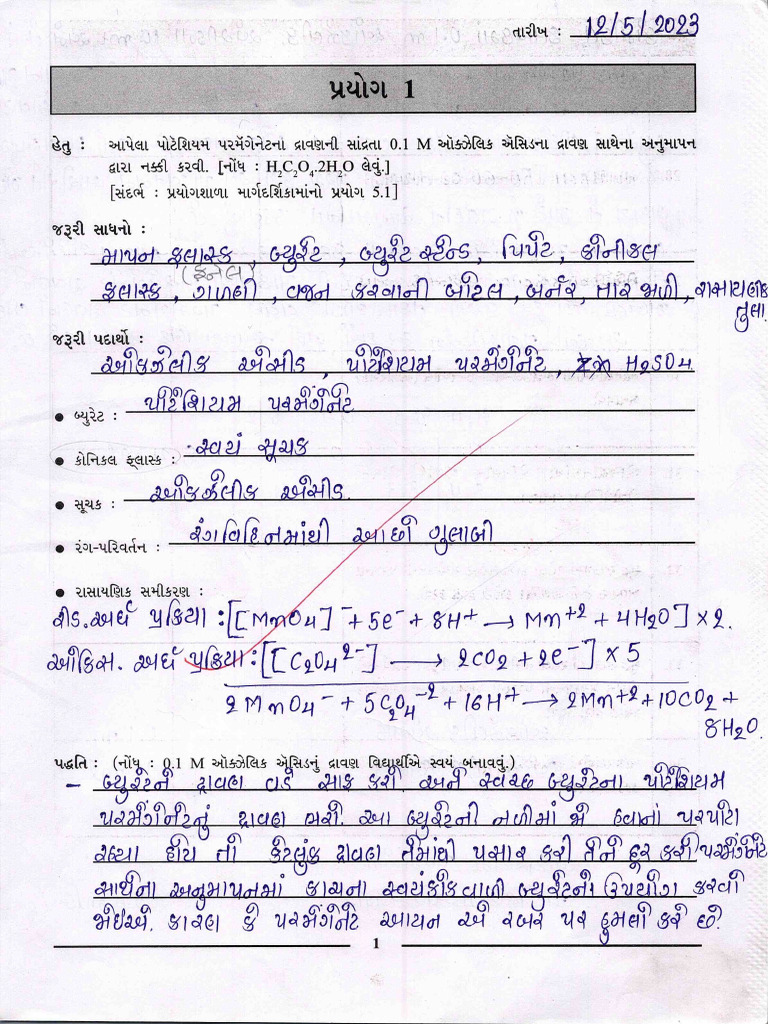 તારીખ : 12/5/2023
પ્રયોગ 1
હેતુ : આપેલા પોટેશિયમ પરમૅંગેનેટનાં દ્રાવણની સાંદ્રતા 0.1 M ઑક્ઝેલિક ઍસિડના દ્રાવણ સાથેના અનુમાપન
દ્વારા નક્કી કરવી. [નોંધ : H₂C₂O₄.2H₂O લેવું.]
[સંદર્ભ : પ્રયોગશાળા માર્ગદર્શિકામાંનો પ્રયોગ 5.1]
જરૂરી સાધનો :
માપન ફલાસ્ક, બ્યુરેટ, બ્યુરેટ સ્ટેન્ડ, પિપેટ, કોનીકલ
(ફનેલ)
ફલાસ્ક, ગળણી, વજન કરવાની બોટલ, બર્નર, તાર જાળી, રાસાયણીક
તુલા.
જરૂરી પદાર્થો :
ઓકઝેલીક એસીડ, પોટેશિયમ પરમેંગેનેટ, H₂SO₄
● બ્યુરેટ : પોટેશિયમ પરમેંગેનેટ
● કોનિકલ ફ્લાસ્ક : સ્વયં સૂચક
● સૂચક : ઓકઝેલીક એસીડ.
● રંગ-પરિવર્તન : રંગવિહિનમાંથી આછો ગુલાબી
● રાસાયણિક સમીકરણ :
રીડ.અર્ધ પ્રક્રિયા : [[MnO₄]⁻ + 5e⁻ + 8H⁺ → Mn⁺² + 4H₂O] × 2.
ઓકિસ. અર્ધ પ્રક્રિયા : [[C₂O₄²⁻] → 2CO₂ + 2e⁻] × 5
2MnO₄⁻ + 5C₂O₄⁻² + 16H⁺ → 2Mn⁺² + 10CO₂ +
8H₂O.
પદ્ધતિ : (નોંધ : 0.1 M ઑક્ઝેલિક ઍસિડનું દ્રાવણ વિદ્યાર્થીએ સ્વયં બનાવવું.)
– બ્યુરેટને દ્રાવણ વડે સાફ કરી. અને સ્વચ્છ બ્યુરેટના પોટેશિયમ
પરમેંગેનેટનું દ્રાવણ ભરો. આ બ્યુરેટની નળીમાં જો હવાનાં પરપોટા
રહ્યા હોય તો કેટલુંક દ્રાવણ તેમાંથી પસાર કરી તેને દૂર કરી પરમેંગેનેટ
સાથેના અનુમાપનમાં કાચના સ્વયંકોકવાળી બ્યુરેટનો ઉપયોગ કરવો
જોઇએ. કારણ કે પરમેંગેનેટ આયન એ રબર પર હુમલો કરે છે.
1